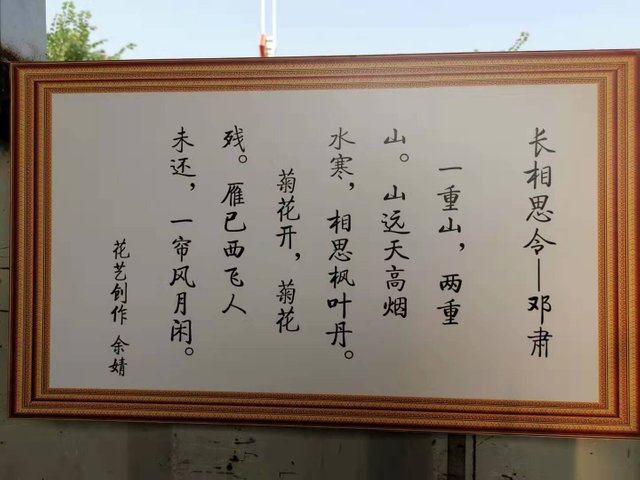 长相思令—邓肃
一重山，两重
山。山远天高烟
水寒，相思枫叶丹。
菊花开，菊花
残。雁已西飞人
未还，一帘风月闲。
花艺创作 余婧